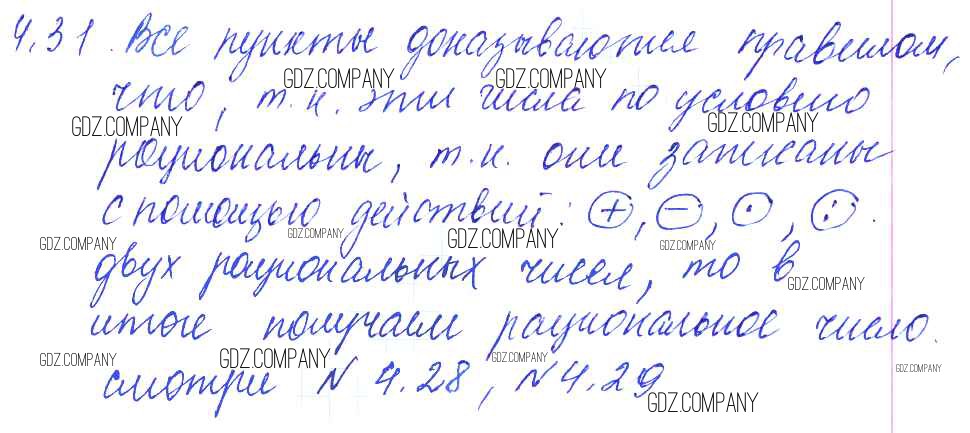 4.31. Все пункты доказываются правилом,
GDZ.COMPANY GDZ.COMPANY
что, т.к. эти числа по условию
GDZ.COMPANY GDZ.COMPANY
рациональны, т.к. они записаны
с помощью действий: +, −, ·, : .
GDZ.COMPANY GDZ.COMPANY GDZ.COMPANY GDZ.COMPANY
двух рациональных чисел, то в
GDZ.COMPANY
итоге получаем рациональное число.
GDZ.COMPANY GDZ.COMPANY GDZ.COMPANY GDZ.COMPANY
смотри N 4.28, N 4.29
GDZ.COMPANY